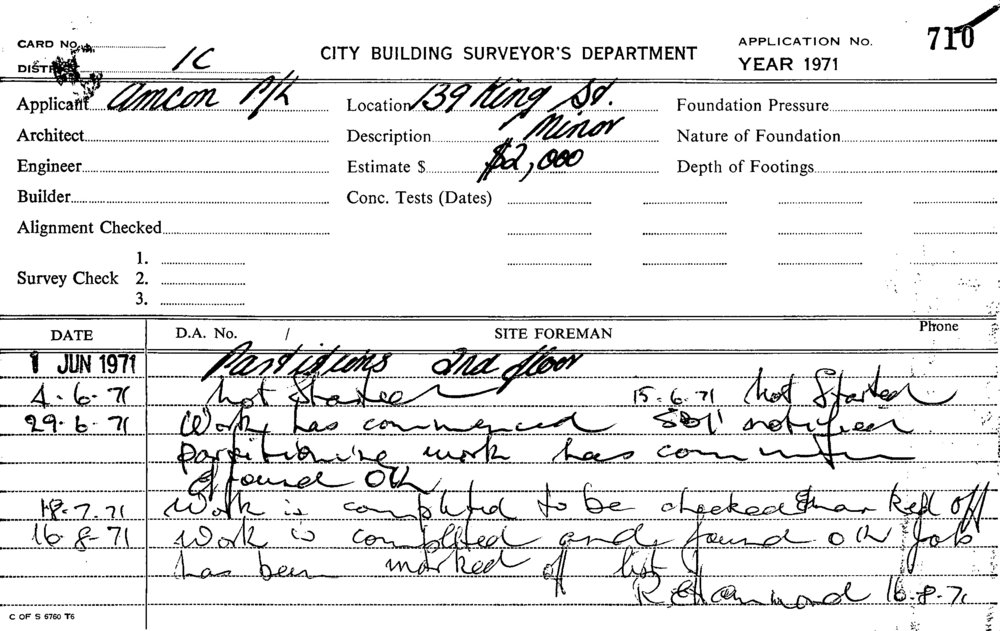 CARD No.
CITY BUILDING SURVEYOR'S DEPARTMENT
APPLICATION No. 710
DISTRICT 1C
YEAR 1971
Applicant Amcon P/L Location 139 King St. Foundation Pressure
Architect Description Minor Nature of Foundation
Engineer Estimate $ $2,000 Depth of Footings
Builder Conc. Tests (Dates)
Alignment Checked
1.
Survey Check 2.
3.
DATE D.A. No. / SITE FOREMAN Phone
1 JUN 1971 Partitions 2nd floor
4.6.71 Not Started 15.6.71 Not Started
29.6.71 Work has commenced notified
partitioning work has
& found OK
18.7.71 Work is completed to be checked & marked off
16.8.71 Work is completed and found OK Job
has been marked off list
R. Hammond 16.8.71
C OF S 6760 T6